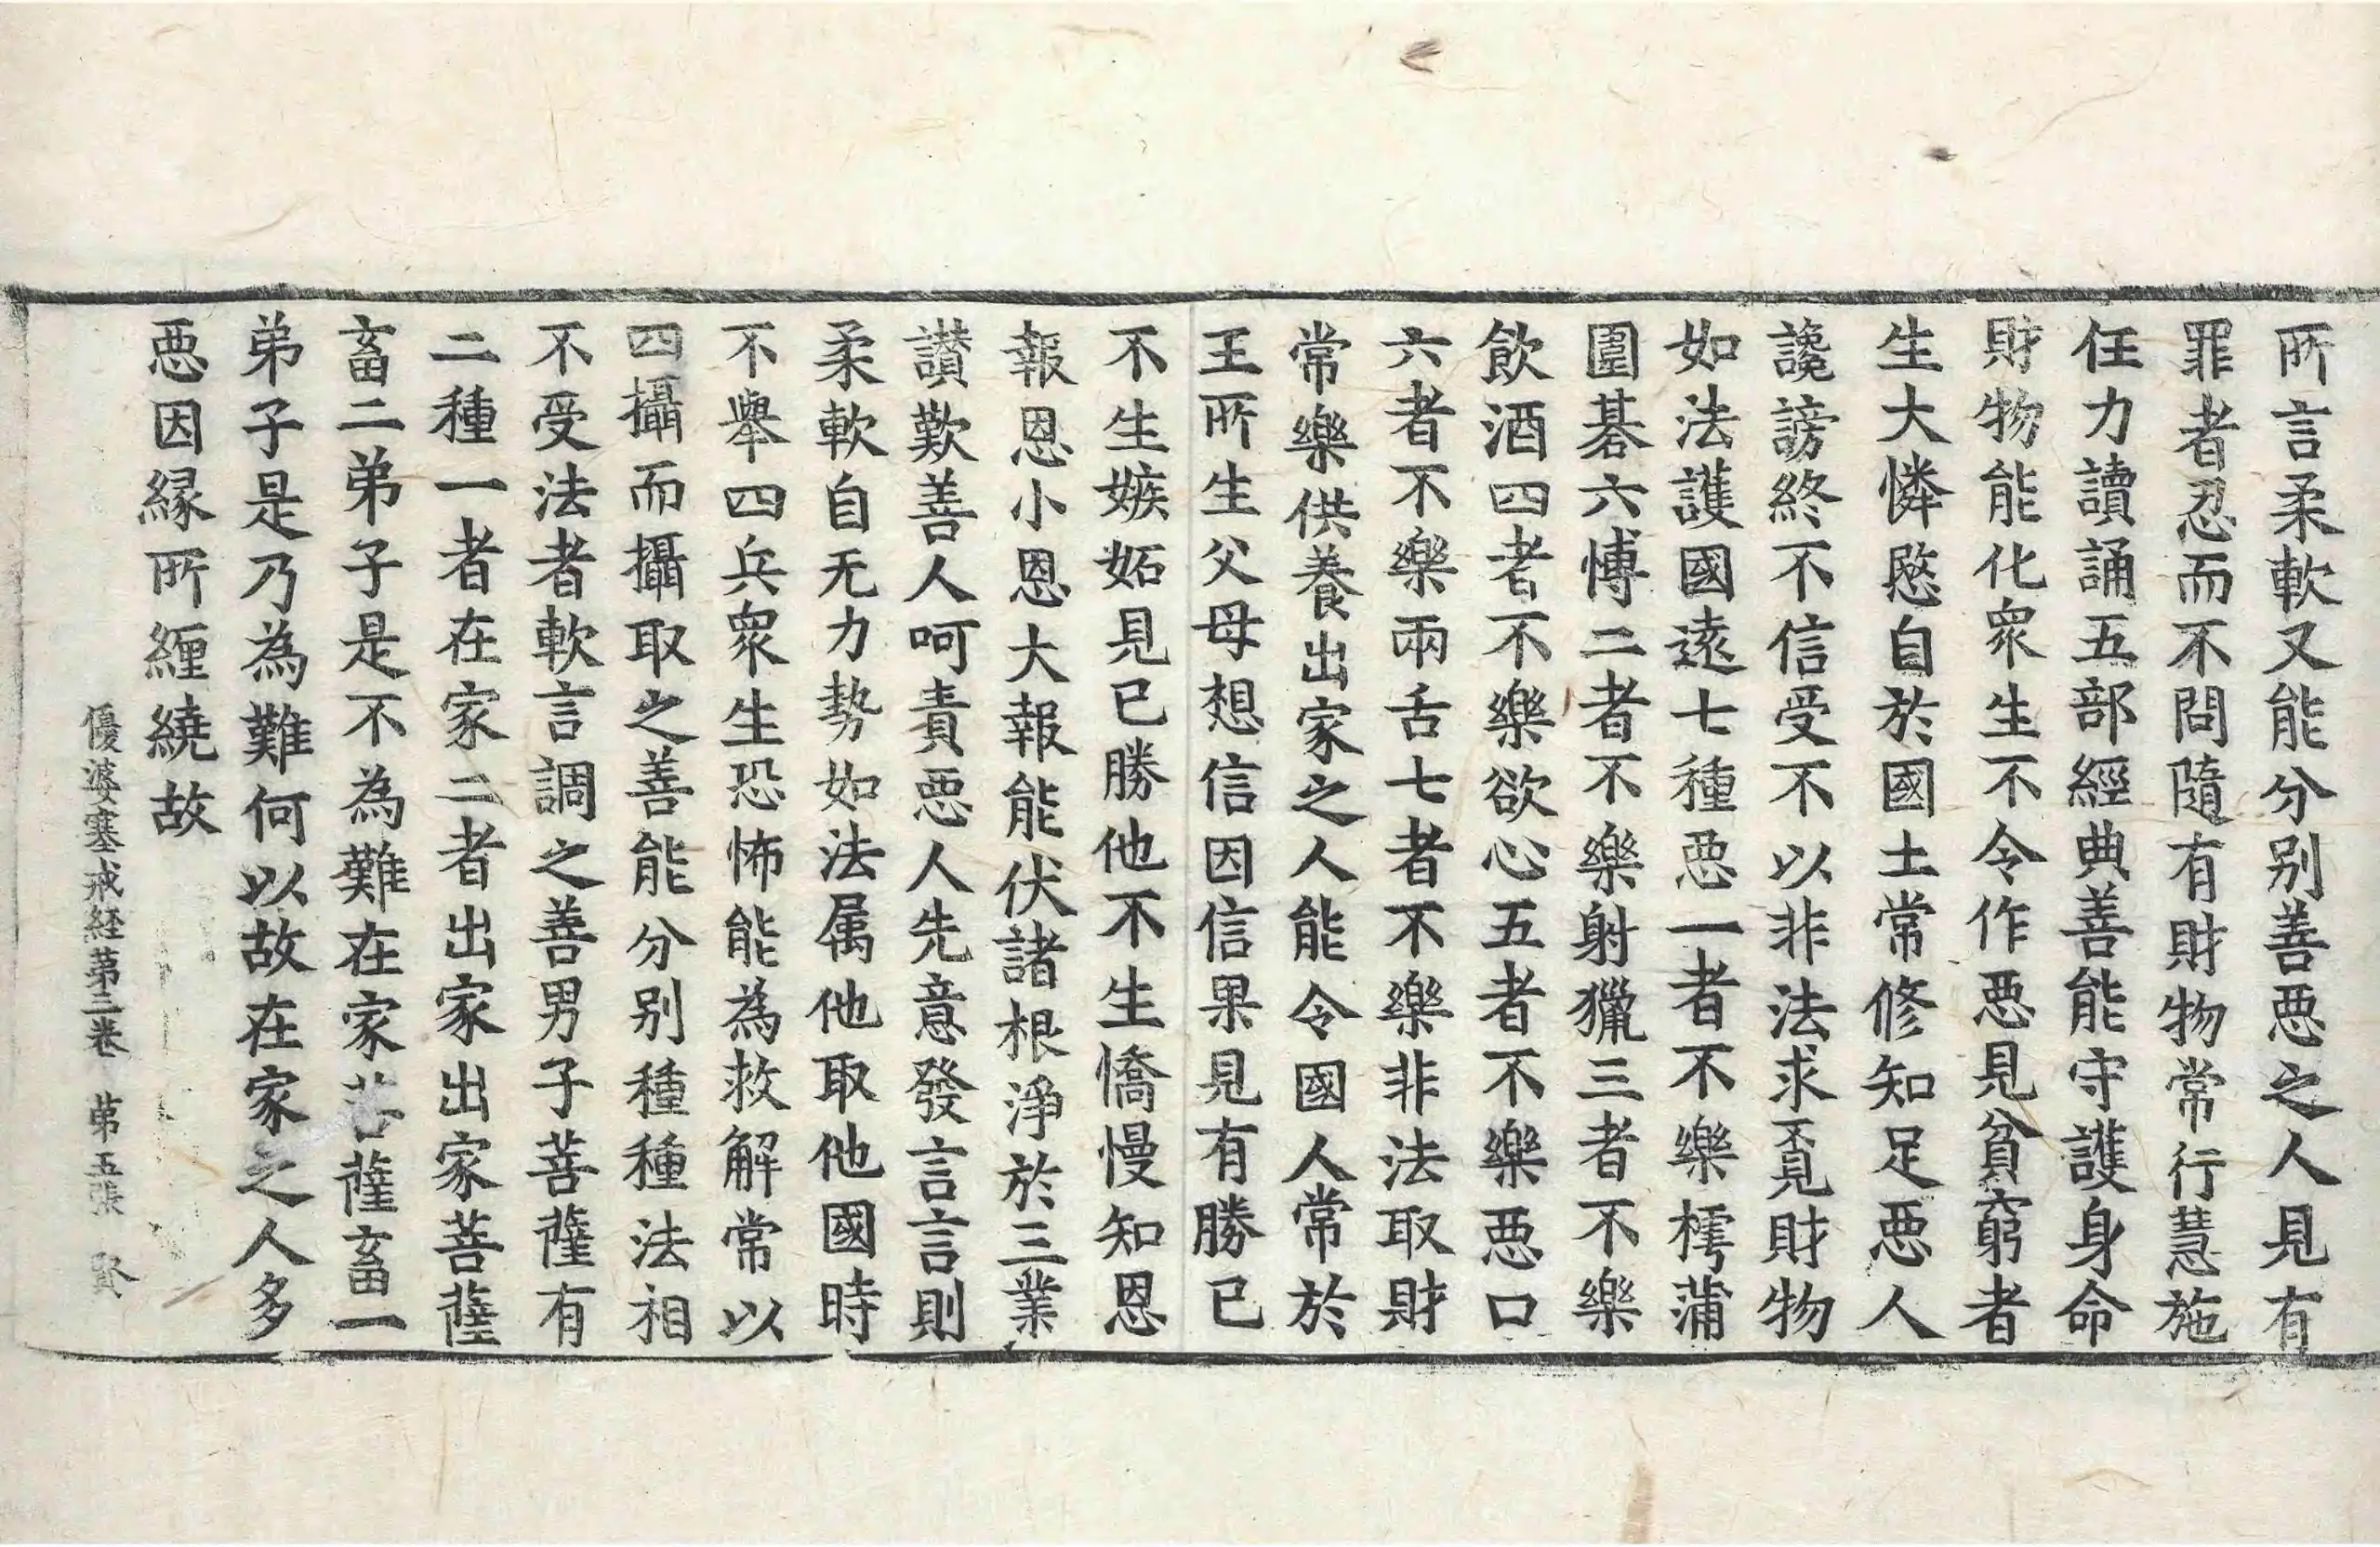 所言柔軟又能分别善惡之人見有
罪者忍而不問隨有財物常行慧施
任力讀誦五部經典善能守護身命
財物能化衆生不令作惡見貧窮者
生大憐愍自於國土常修知足惡人
讒謗終不信受不以非法求覓財物
如法護國遠七種惡一者不樂樗蒲
圍碁六愽二者不樂射獵三者不樂
飲酒四者不樂欲心五者不樂惡口
六者不樂兩舌七者不樂非法取財
常樂供養出家之人能令國人常於
王所生父母想信因信果見有勝已
不生嫉妬見已勝他不生憍慢知恩
報恩小恩大報能伏諸根淨於三業
讃歎善人呵責惡人先意發言言則
柔軟自无力勢如法属他取他國時
不舉四兵衆生恐怖能為救解常以
四攝而攝取之善能分别種種法相
不受法者軟言調之善男子菩薩有
二種一者在家二者出家出家菩薩
畜二弟子是不為難在家菩薩畜一
弟子是乃為難何以故在家之人多
惡因縁所纒繞故
優婆塞戒経第三卷 第五張